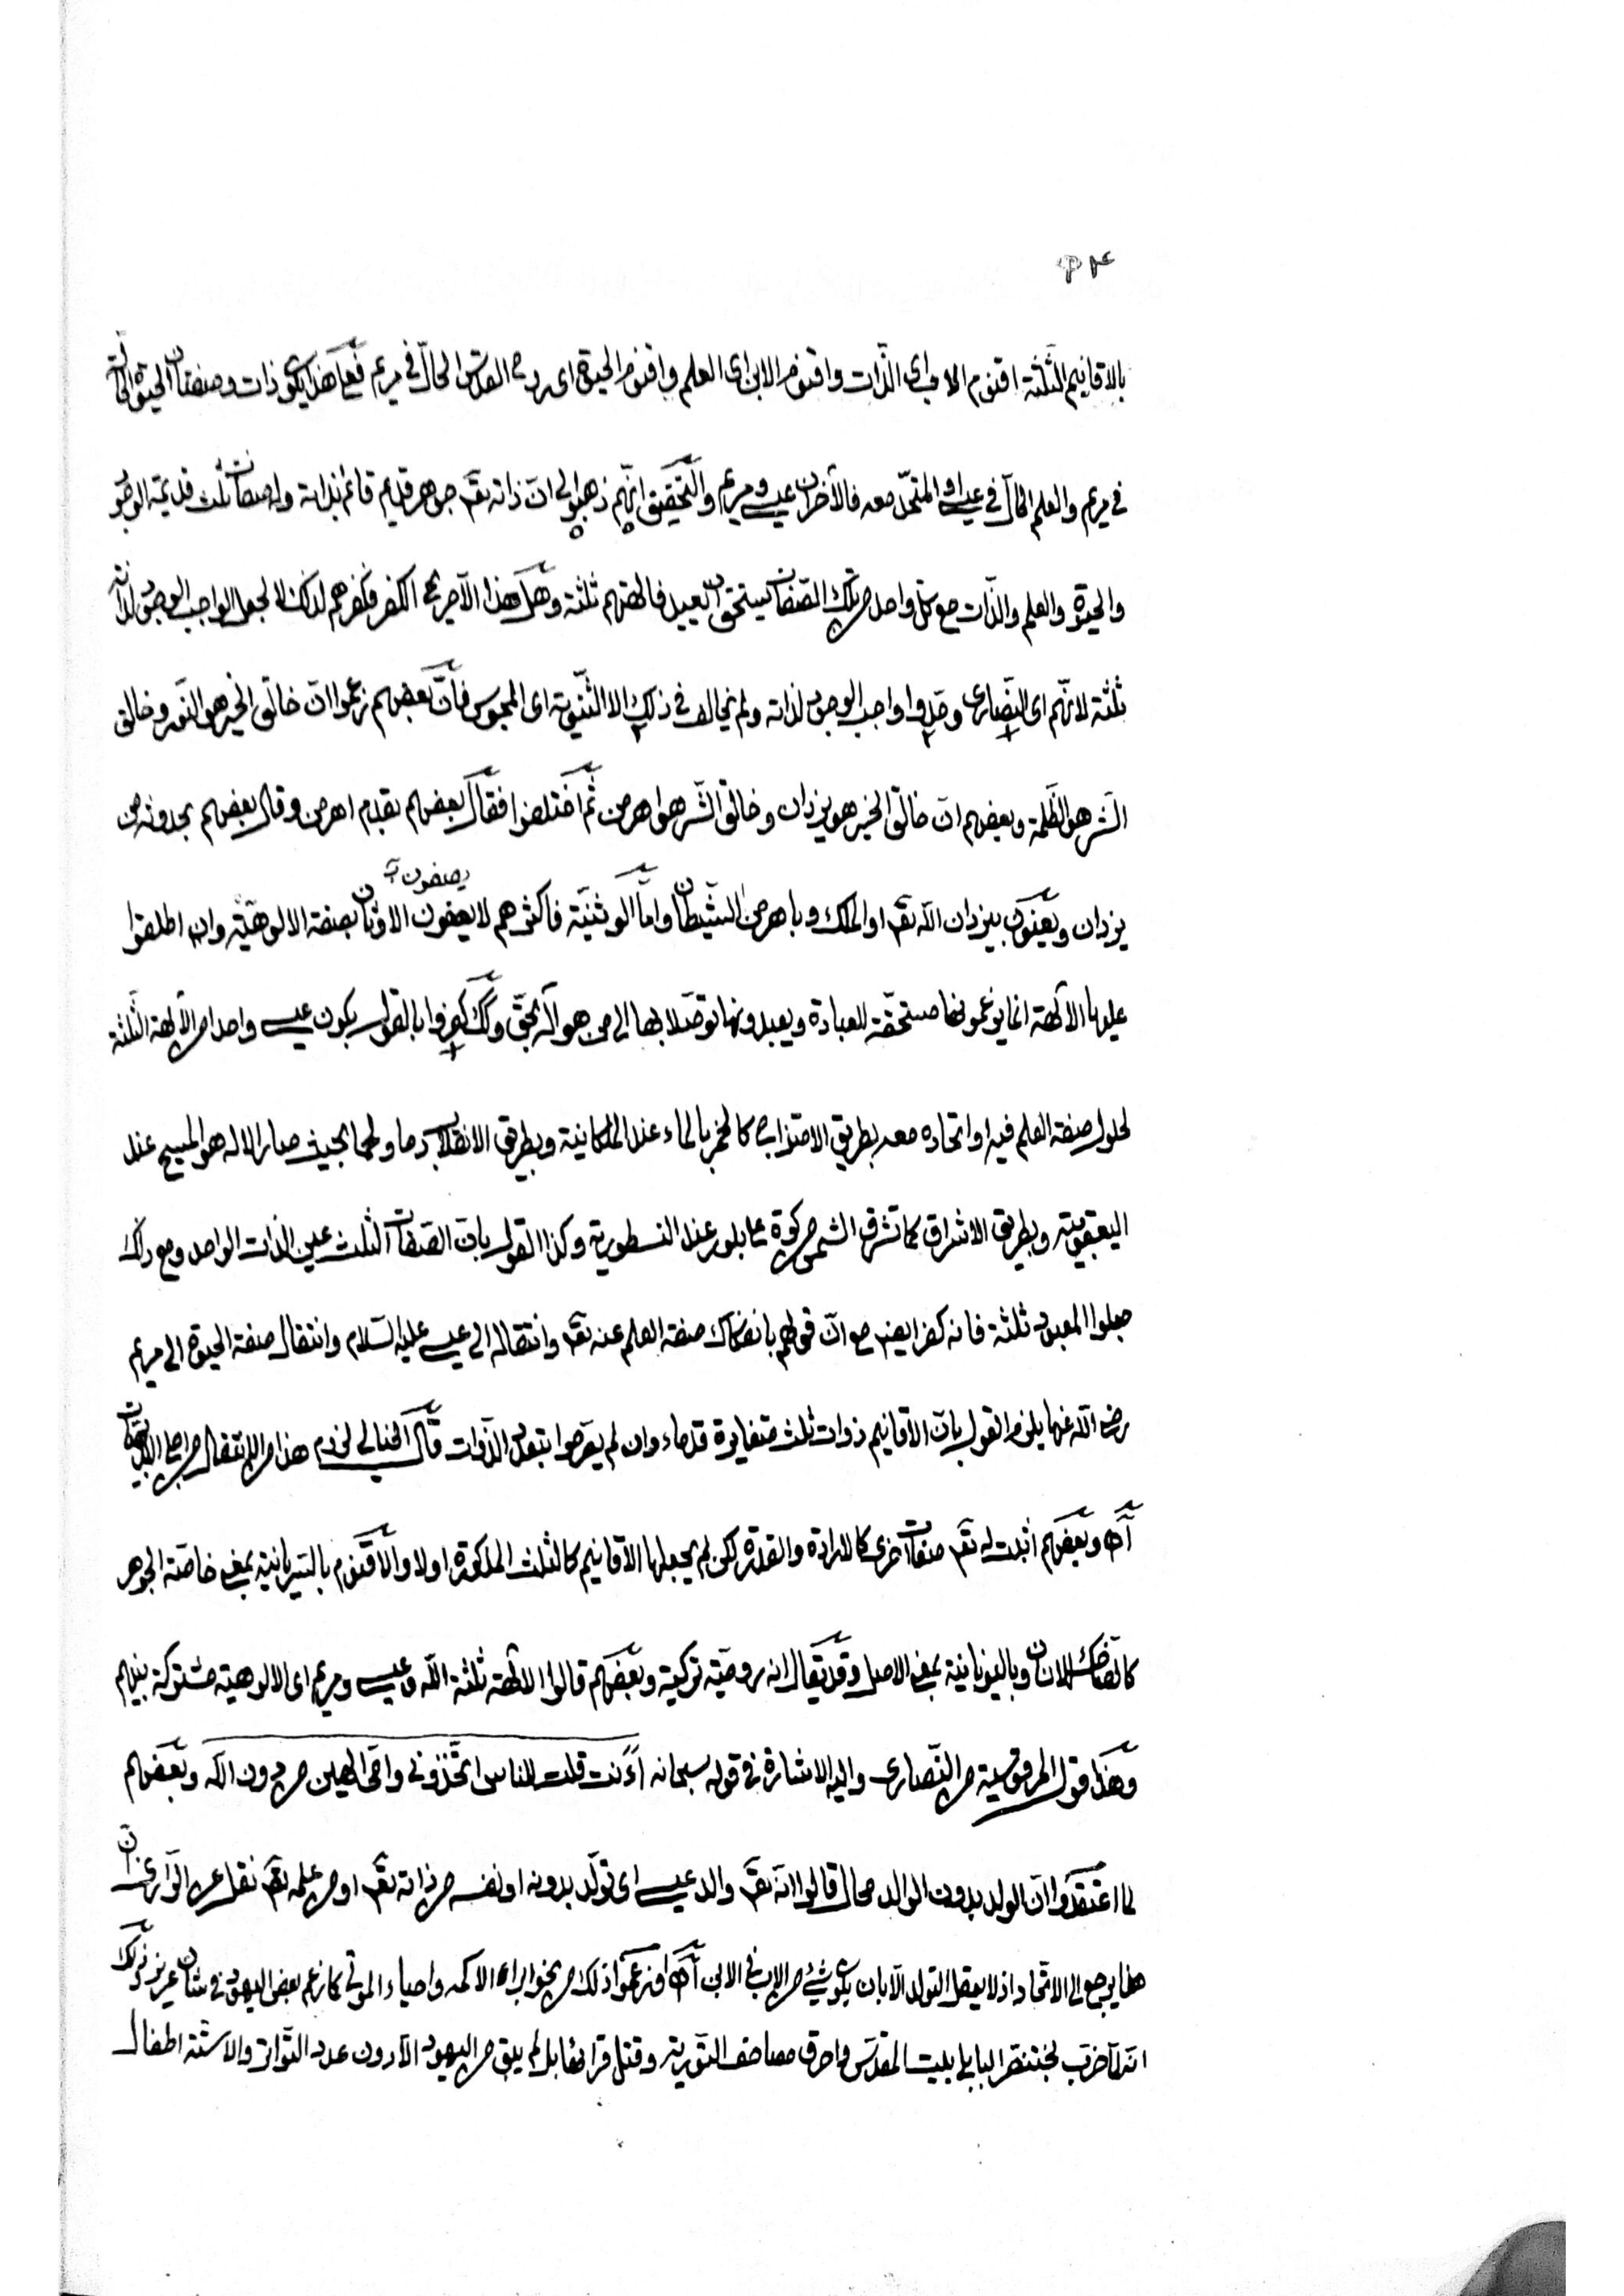 ٢٤
بالاقانيم الثلثة اقنوم الاب اى الذّات واقنوم الابن اى العلم واقنوم الحيوة اى روح القدس الحالّ فى مريم فعلى هذا يكون ذات وصفتان الحيوة الحالّة
فى مريم والعلم الحالّ فى عيسى او المتحدّ معه فالأخران عيسى ومريم والتحقيق انّهم ذهبوا الى انّ ذاته تعَ جوهر قديم قائم بذاته وله صفات ثلث قديمة الوجود
والحيوة والعلم والذّات مع كل واحد من تلك الصّفات يستحق ان يعبد فالهتهم ثلثة وهل هذا الّا صريح الكفر فكفرهم لذلك لا لجعل الواجب الوجود لذاته
ثلثة لانّهم اى النّصارى وحّدوا واجب الوجود لذاته ولم يخالف فى ذلك الا الثّنويّة اى المجوس فانّ بعضهم زعموا انّ خالق الخير هو النّور وخالق
الشّر هو الظّلمة وبعضهم انّ خالق الخير هو يزدان وخالق الشّر هو اهرمن ثمّ اختلفوا فقال بعضهم بقدم اهرمن وقال بعضهم بحدوثه من
يزدان ويعنون بيزدان اللّه تعَ او الملك وباهرمن الشّيطان وامّا الوثنيّة فاكثرهم لا يعفون الاوثان بصفة الالوهيّة وان اطلقوا
يصفون
عليها الآلهة انما يزعمونها مستحقّة للعبادة ويعبدونها توصّلا بها الى من هو اله بحقّ وكك كفروا بالقول بكون عيسى واحدا من الآلهة الثّلثة
لحلول صفة العلم فيه او اتحاده معه بطريق الامتزاج كالخمر بالماء عند الملكانية وبطريق الانقلاب دما ولحما بحيث صار الاله هو المسيح عند
اليعقوبيّة وبطريق الاشراق كما تشرق الشمس من كوة على بلور عند النسطورية وكذا القول بانّ الصّفات الثلث عين الذات الواحد ومع ذلك
جعلوا المعبود ثلثة فانه كفر ايضا مع انّ قولهم بانفكاك صفة العلم عنه تعَ وانتقاله الى عيسى عليه السّلام وانتقال صفة الحيوة الى مريم
رضى اللّه عنها يلزم القول بانّ الاقانيم ذوات ثلث متغايرة قدماء وان لم يصرّحوا بتعدد الذّوات قال الخيالى لزوم هذا من الانتقال من اجلى البديهيّات
آه وبعضهم اثبت له تعَ صفات اخرى كالارادة والقدرة لكن لم يجعلها الاقانيم كالثلث المذكورة اولا والاقنوم بالسّريانية بمعنى خاصّة الجوهر
كالضاحك للانسان وباليونانية بمعنى الاصل وقد يقال انه روميّة تركية وبعضهم قالوا الآلهة ثلثة اللّه وعيسى ومريم اى الالوهية مشتركة بينهم
وهذا قول المرقوسية من النّصارى واليه الاشارة فى قوله سبحانه أءنت قلت للناس اتّخذونى وامّى الهين من دون اللّه وبعضهم
لما اعتقدوا انّ الولد بدون الوالد محال قالوا انّه تعَ والد عيسى اى تولّد بدونه او نفسه من ذاته تعَ او من علمه تعَ نقل عن الرّازى انّ
هذا يرجع الى الاتّحاد اذ لا يعقل التولد الّا بان يكون شئ من الاب فى الابن آه او زعموا ذلك من نحو ابراء الاكمه واحياء الموتى كما زعم بعض اليهود فى شان عزير وذلك
انّه لمّا خرّب بختنصّر البابلى بيت المقدس واحرق مصاحف التورية وقتل قرائها بل لم يبق من اليهود الّا دون عدد التّواتر والاسنّة اطفال